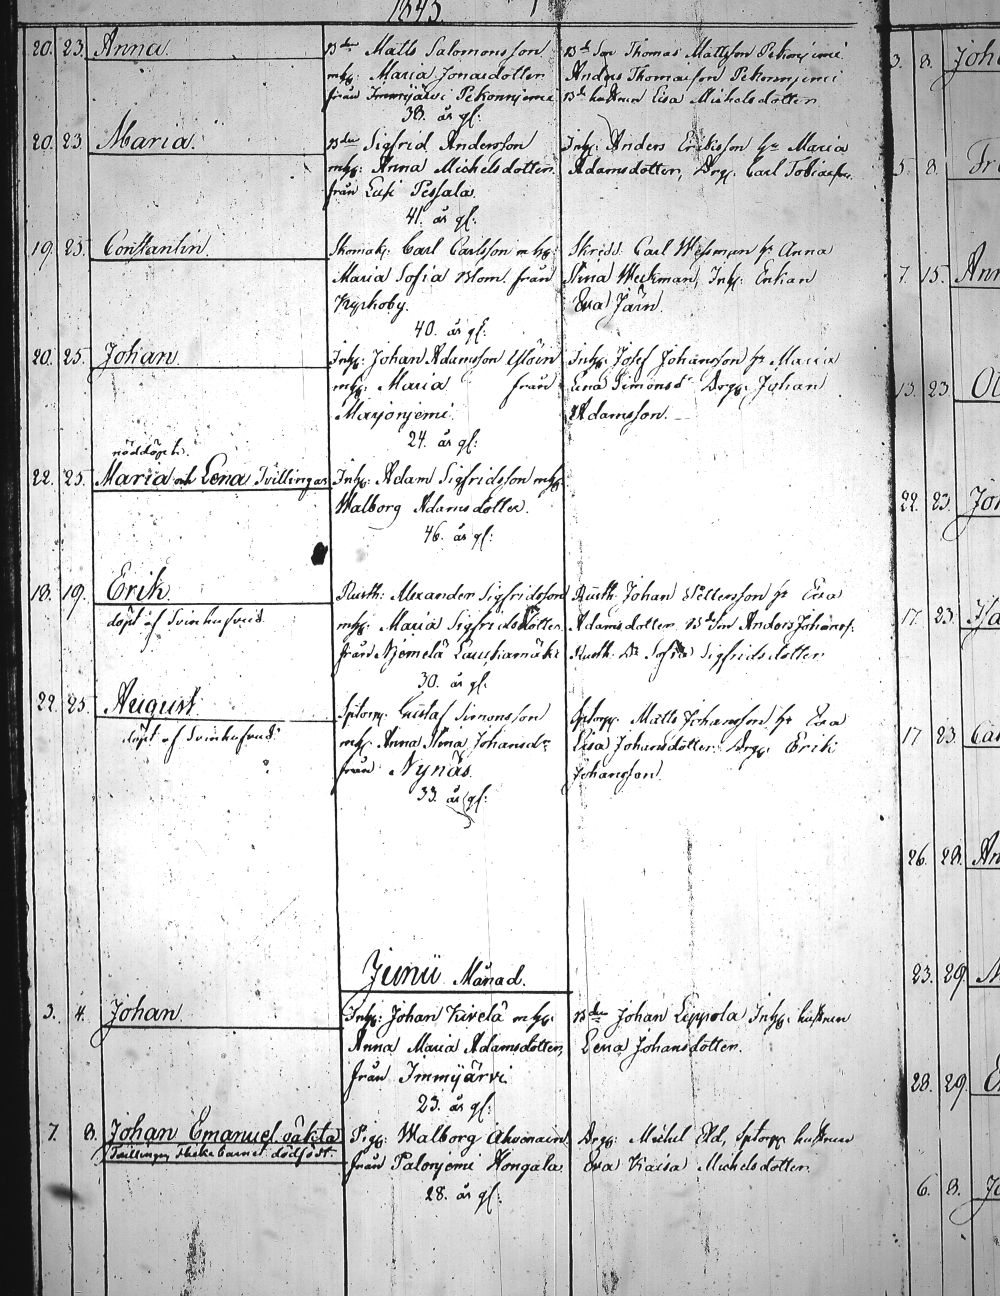 1843.
20. 23. Anna. Bden Matts Salomonsson Bde Son Thomas Mattsson Pekonjemi
mhg: Maria Jonasdotter Anders Thomasson Pekonnjemi
från Immijärvi Pekonnjemi Bde hustrun Lisa Michelsdotter
38. år gl:
20. 23. Maria. Bden Sigfrid Andersson Inhg: Anders Ericksson hu Maria
mhg: Anna Michelsdotter Adamsdotter, Drg. Carl Tobiasson
från Pessala.
41. år gl:
19. 25. Constantin. Skomak: Carl Carlsson mhg: Skrädd. Carl Wessman hu Anna
Maria Sofia Blom från Stina Weckman, Inh: Enkan
Kyrkoby. Eva Järn.
40. år gl:
20. 25. Johan. Inhg: Johan Adamsson Inhg: Josef Johansson hu Maria
mhg: Maria från Lena Simonsdr Drg: Johan
Marjonjemi. Adamsson.
24. år gl:
nöddöpt.
22. 25. Maria och Lena Tvillingar Inhg: Adam Sigfridsson mhg:
Walborg Adamsdotter.
46. år gl:
18. 19. Erik Rusth: Alexander Sigfridsson Rusth Johan Pettersson hu Eva
döpt af Svinhufvud mhg: Maria Sigfridsdotter Adamsdotter. Bde Son Anders Johanss:
från Njemelä Rusth. Dr Sofia Sigfridsdotter
30. år gl.
22. 25. August. Sptorp: Gustaf Simonsson Sptorp: Matts Johansson hu Eva
döpt af Svinhufvud. mhg: Anna Stina Johansdr Lisa Johansdotter. Drg: Erik
från Nynäs. Johansson.
33. år gl:
Junii Månad.
3. 4. Johan Inhg: Johan Kivelä mhg: Bden Johan Leppola Inhg. hustrun
Anna Maria Adamsdotter, Lena Johansdotter.
från Immijärvi.
23. år gl:
7. 8. Johan Emanuel oäkta Pig: Walborg Ahonain Drg: Michel Eld, Sptorp: hustrun
Tvillingen Flickebarnet dödfödt. från Palonjemi Hongala Eva Kaisa Michelsdotter.
28. år gl:
3. 8. Joha
5. 8. Fre
7. 15. Ann
13. 23.
22. 23. Joh
17. 23.
17 23. Car
26. 28. An
23. 29.
28. 29.
6. 8. Jo